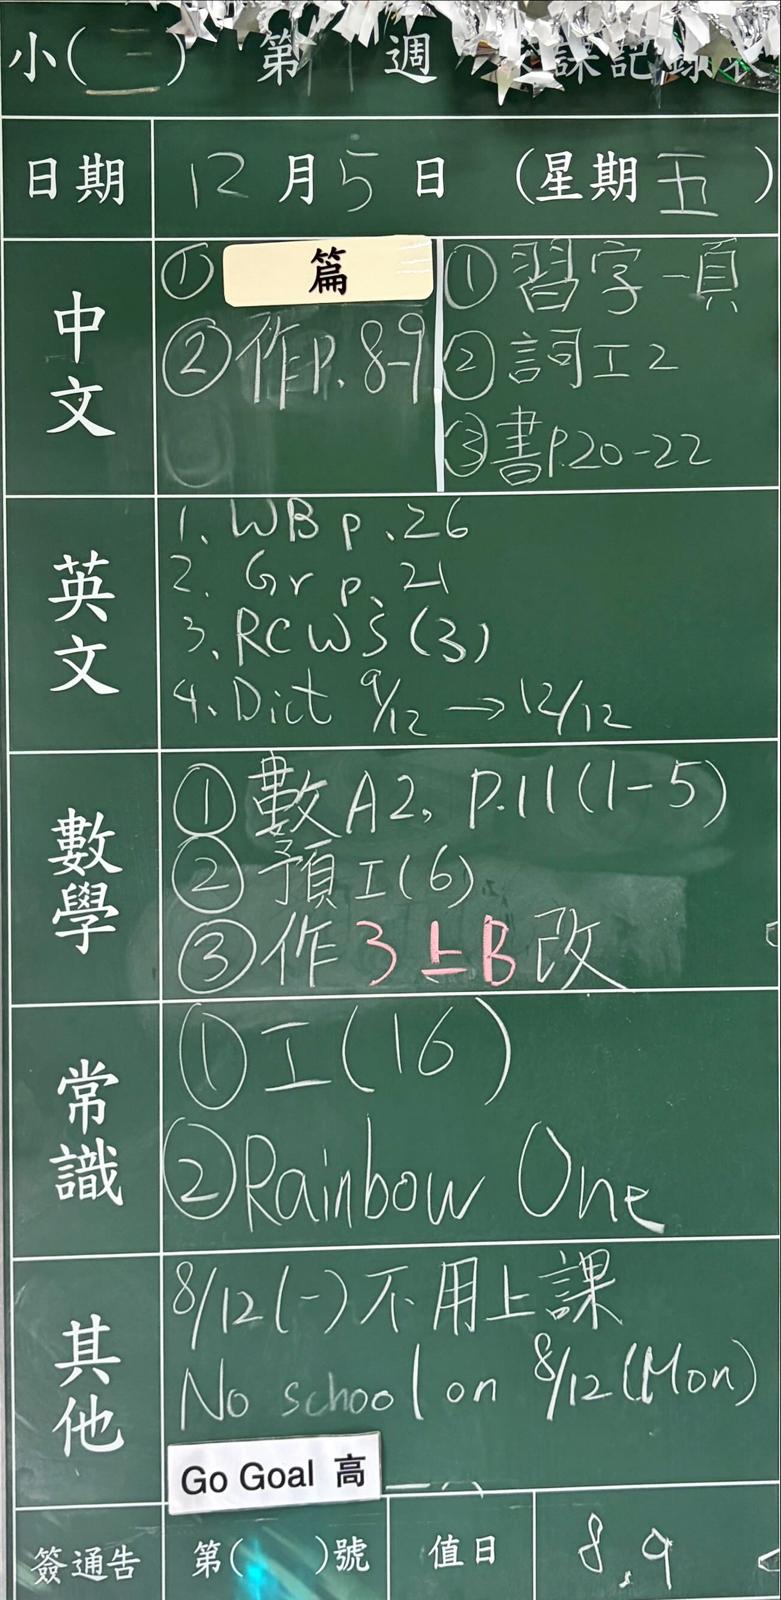 小(三) 第 週 課記錄表
日期 12月5日 (星期五)
中文
① 篇
② 作P. 8-9
① 習字一頁
② 詞工2
③ 書P.20-22
英文
1. WB p.26
2. Gr p.21
3. RC WS (3)
4. Dict 9/12 → 12/12
數學
① 數A2, P.11(1-5)
② 預工(6)
③ 作3上B改
常識
① 工(16)
② Rainbow One
其他
8/12(一)不用上課
No school on 8/12(Mon)
Go Goal 高
簽通告 第( )號 值日 8.9